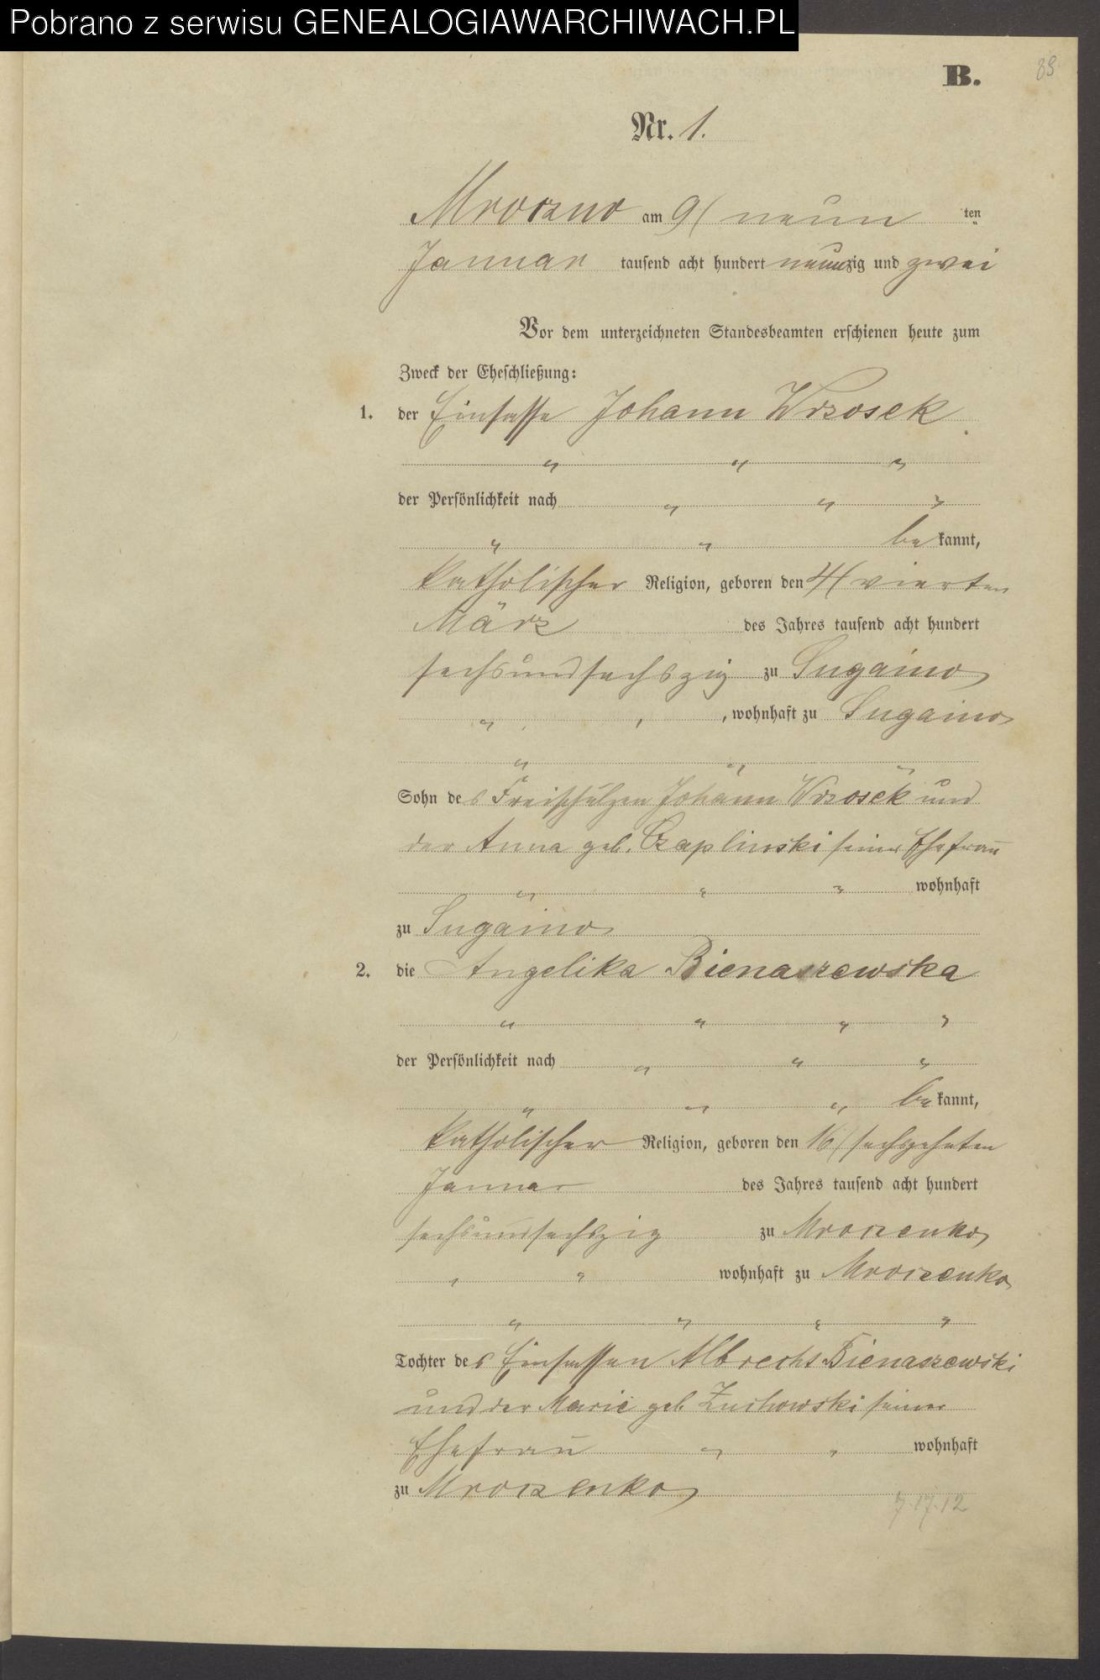 Pobrano z serwisu GENEALOGIAWARCHIWACH.PL
B.
Nr. 1.
Mroczno am 9/ neun ten
Januar tausend acht hundert neunzig und zwei
Vor dem unterzeichneten Standesbeamten erschienen heute zum
Zweck der Eheschließung:
1. der Einsasse Johann Wrzosek
" " "
der Persönlichkeit nach " " "
" " be kannt,
katholischer Religion, geboren den 4/ vierten
März des Jahres tausend acht hundert
sechsundsechszig zu Sugaino
" , wohnhaft zu Sugaino
" " "
Sohn des Freischulzen Johann Wrzosek und
der Anna geb. Czaplinski seiner Ehefrau
" " " wohnhaft
zu Sugaino
2. die Angelika Bienaszewska
" " " "
der Persönlichkeit nach " " "
" " " be kannt,
katholischer Religion, geboren den 16/ sechszehnten
Januar des Jahres tausend acht hundert
sechsundsechszig zu Mroczenko
" " wohnhaft zu Mroczenko
" " " "
Tochter des Einsassen Albrecht Bienaszewski
und der Marie geb Zuchowski seiner
Ehefrau " " wohnhaft
zu Mroczenko